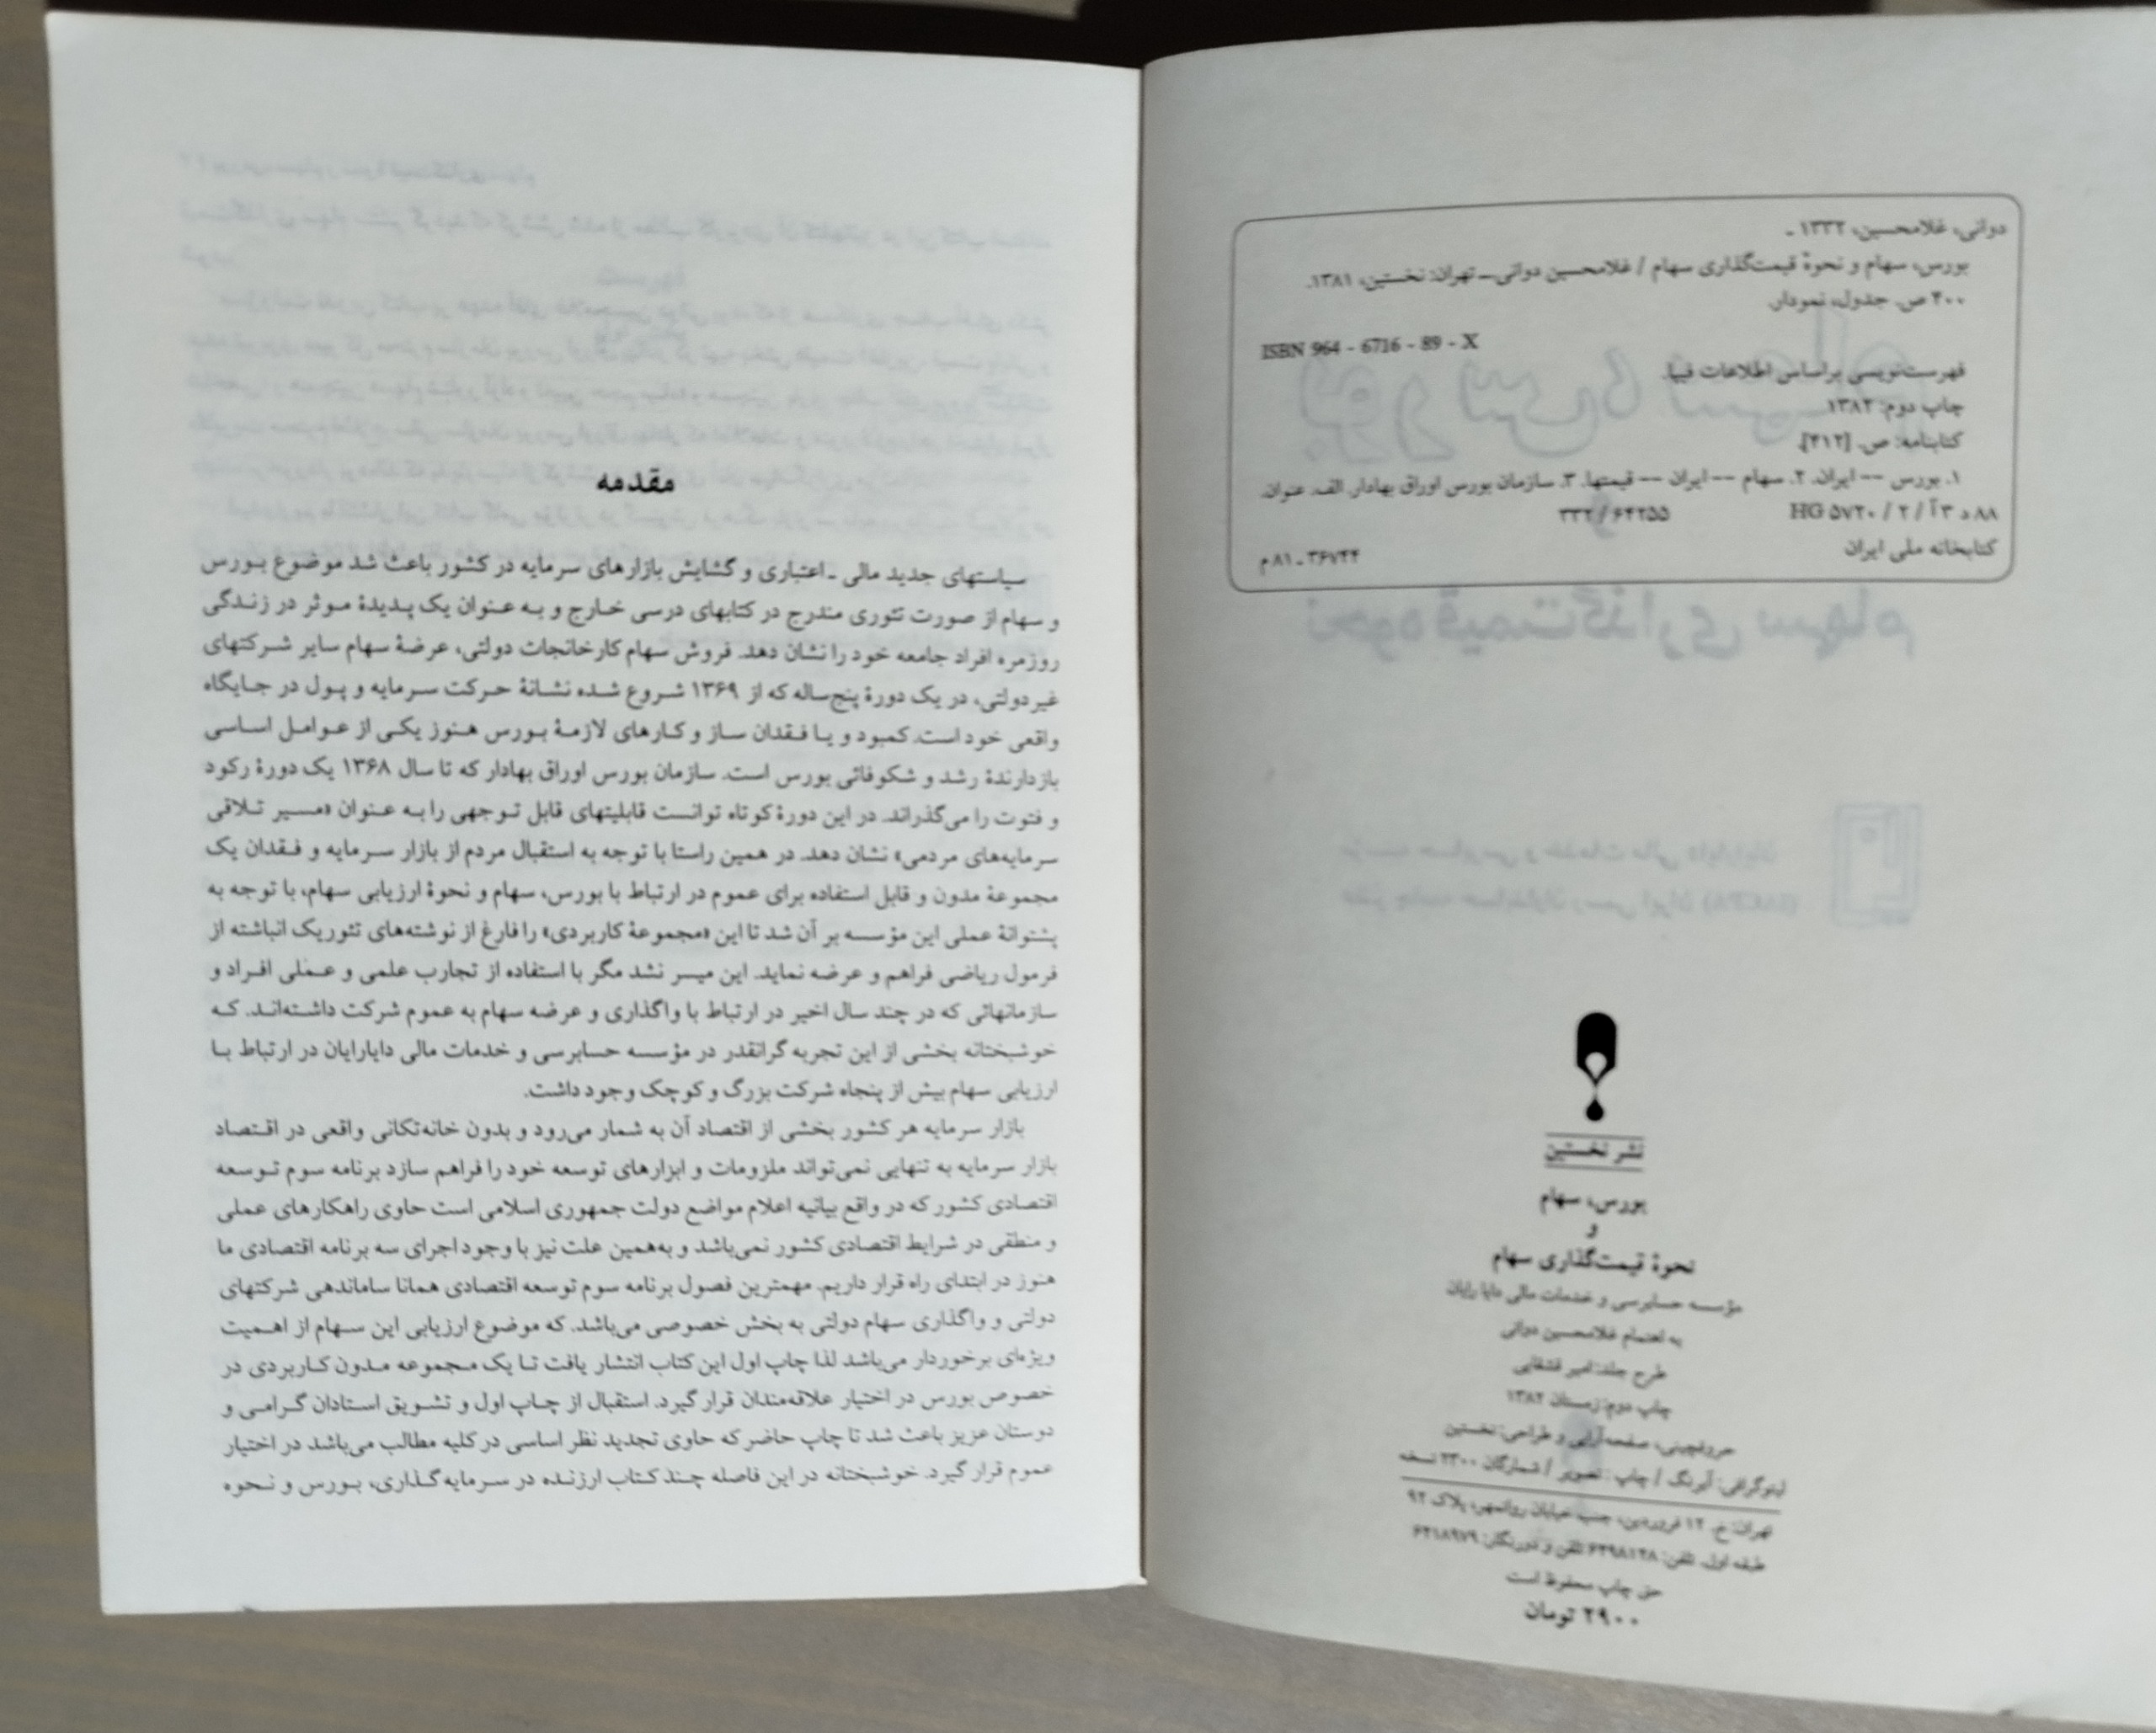 دوانی، غلامحسین، ۱۳۳۲ ـ
بورس، سهام و نحوهٔ قیمت‌گذاری سهام / غلامحسین دوانی ـ تهران: نخستین، ۱۳۸۱.
۴۰۰ ص. جدول، نمودار.
ISBN 964 - 6716 - 89 - X
فهرست‌نویسی براساس اطلاعات فیپا.
چاپ دوم: ۱۳۸۲
کتابنامه: ص. [۴۱۲].
۱. بورس -- ایران. ۲. سهام -- ایران -- قیمتها. ۳. سازمان بورس اوراق بهادار. الف. عنوان.
۸۸ د ۳ آ / ۲ / HG ۵۷۲۰ ۳۳۲ / ۶۴۲۵۵
کتابخانه ملی ایران ۳۶۷۴۴ ـ ۸۱ م
نشر نخستین
بورس، سهام
و
نحوهٔ قیمت‌گذاری سهام
مؤسسه حسابرسی و خدمات مالی دایا رایان
به اهتمام غلامحسین دوانی
طرح جلد: امیر قشقایی
چاپ دوم: زمستان ۱۳۸۲
حروفچینی، صفحه‌آرایی و طراحی: نخستین
لیتوگرافی: آبرنگ / چاپ: تصویر / شمارگان ۲۳۰۰ نسخه
تهران: خ. ۱۲ فروردین، جنب خیابان روانمهر، پلاک ۹۲
طبقه اول. تلفن: ۶۴۹۸۱۲۸ تلفن و دورنگار: ۶۴۱۸۹۷۹
حق چاپ محفوظ است
۲۹۰۰ تومان
مقدمه
سیاستهای جدید مالی ـ اعتباری و گشایش بازارهای سرمایه در کشور باعث شد موضوع بورس
و سهام از صورت تئوری مندرج در کتابهای درسی خارج و به عنوان یک پدیدهٔ موثر در زندگی
روزمره افراد جامعه خود را نشان دهد. فروش سهام کارخانجات دولتی، عرضهٔ سهام سایر شرکتهای
غیردولتی، در یک دورهٔ پنج‌ساله که از ۱۳۶۹ شروع شده نشانهٔ حرکت سرمایه و پول در جایگاه
واقعی خود است. کمبود و یا فقدان ساز و کارهای لازمهٔ بورس هنوز یکی از عوامل اساسی
بازدارندهٔ رشد و شکوفائی بورس است. سازمان بورس اوراق بهادار که تا سال ۱۳۶۸ یک دورهٔ رکود
و فتوت را می‌گذراند. در این دورهٔ کوتاه توانست قابلیتهای قابل توجهی را به عنوان «مسیر تلاقی
سرمایه‌های مردمی» نشان دهد. در همین راستا با توجه به استقبال مردم از بازار سرمایه و فقدان یک
مجموعهٔ مدون و قابل استفاده برای عموم در ارتباط با بورس، سهام و نحوهٔ ارزیابی سهام، با توجه به
پشتوانهٔ عملی این مؤسسه بر آن شد تا این «مجموعهٔ کاربردی» را فارغ از نوشته‌های تئوریک انباشته از
فرمول ریاضی فراهم و عرضه نماید. این میسر نشد مگر با استفاده از تجارب علمی و عملی افراد و
سازمانهائی که در چند سال اخیر در ارتباط با واگذاری و عرضه سهام به عموم شرکت داشته‌اند. که
خوشبختانه بخشی از این تجربه گرانقدر در مؤسسه حسابرسی و خدمات مالی دایارایان در ارتباط با
ارزیابی سهام بیش از پنجاه شرکت بزرگ و کوچک وجود داشت.
بازار سرمایه هر کشور بخشی از اقتصاد آن به شمار می‌رود و بدون خانه‌تکانی واقعی در اقتصاد
بازار سرمایه به تنهایی نمی‌تواند ملزومات و ابزارهای توسعه خود را فراهم سازد برنامه سوم توسعه
اقتصادی کشور که در واقع بیانیه اعلام مواضع دولت جمهوری اسلامی است حاوی راهکارهای عملی
و منطقی در شرایط اقتصادی کشور نمی‌باشد و به‌همین علت نیز با وجود اجرای سه برنامه اقتصادی ما
هنوز در ابتدای راه قرار داریم. مهمترین فصول برنامه سوم توسعه اقتصادی همانا ساماندهی شرکتهای
دولتی و واگذاری سهام دولتی به بخش خصوصی می‌باشد. که موضوع ارزیابی این سهام از اهمیت
ویژه‌ای برخوردار می‌باشد لذا چاپ اول این کتاب انتشار یافت تا یک مجموعه مدون کاربردی در
خصوص بورس در اختیار علاقه‌مندان قرار گیرد. استقبال از چاپ اول و تشویق استادان گرامی و
دوستان عزیز باعث شد تا چاپ حاضر که حاوی تجدید نظر اساسی در کلیه مطالب می‌باشد در اختیار
عموم قرار گیرد. خوشبختانه در این فاصله چند کتاب ارزنده در سرمایه‌گذاری، بورس و نحوه